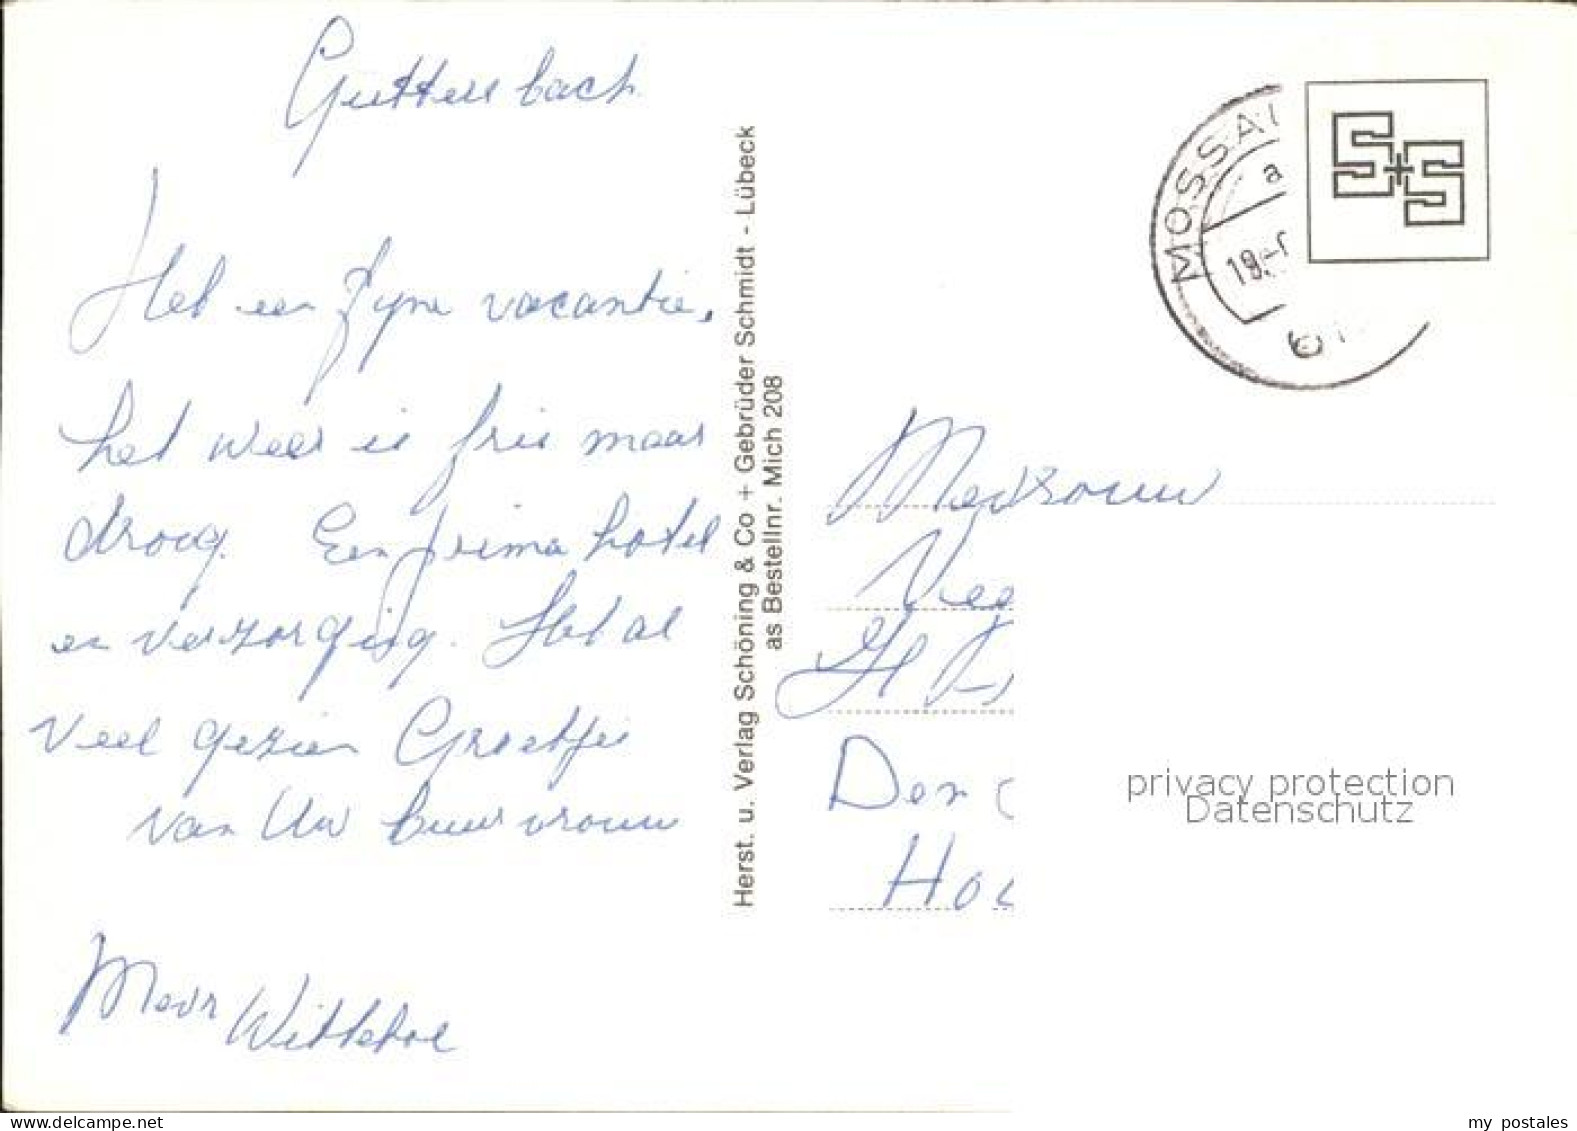 Guttenbach
Heb een fijne vacantie,
het weer is fris maar
droog. Een prima hotel
en verzorging. Heb al
veel gezien Groetjes
van Uw buurvrouw
Mevr
Herst. u. Verlag Schöning & Co + Gebrüder Schmidt - Lübeck
as Bestellnr. Mich 208
MOSSA
a
19.
61
S+S
Mevrouw
Den
privacy protection
Datenschutz
my postales